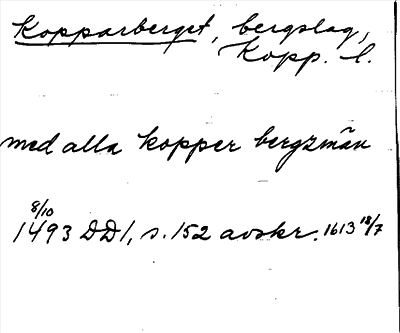 Kopparberget, bergslag,
Kopp. l.
med alla kopper bergzmän
8/10
1493 DD1, s. 152 avskr. 1613 18/7